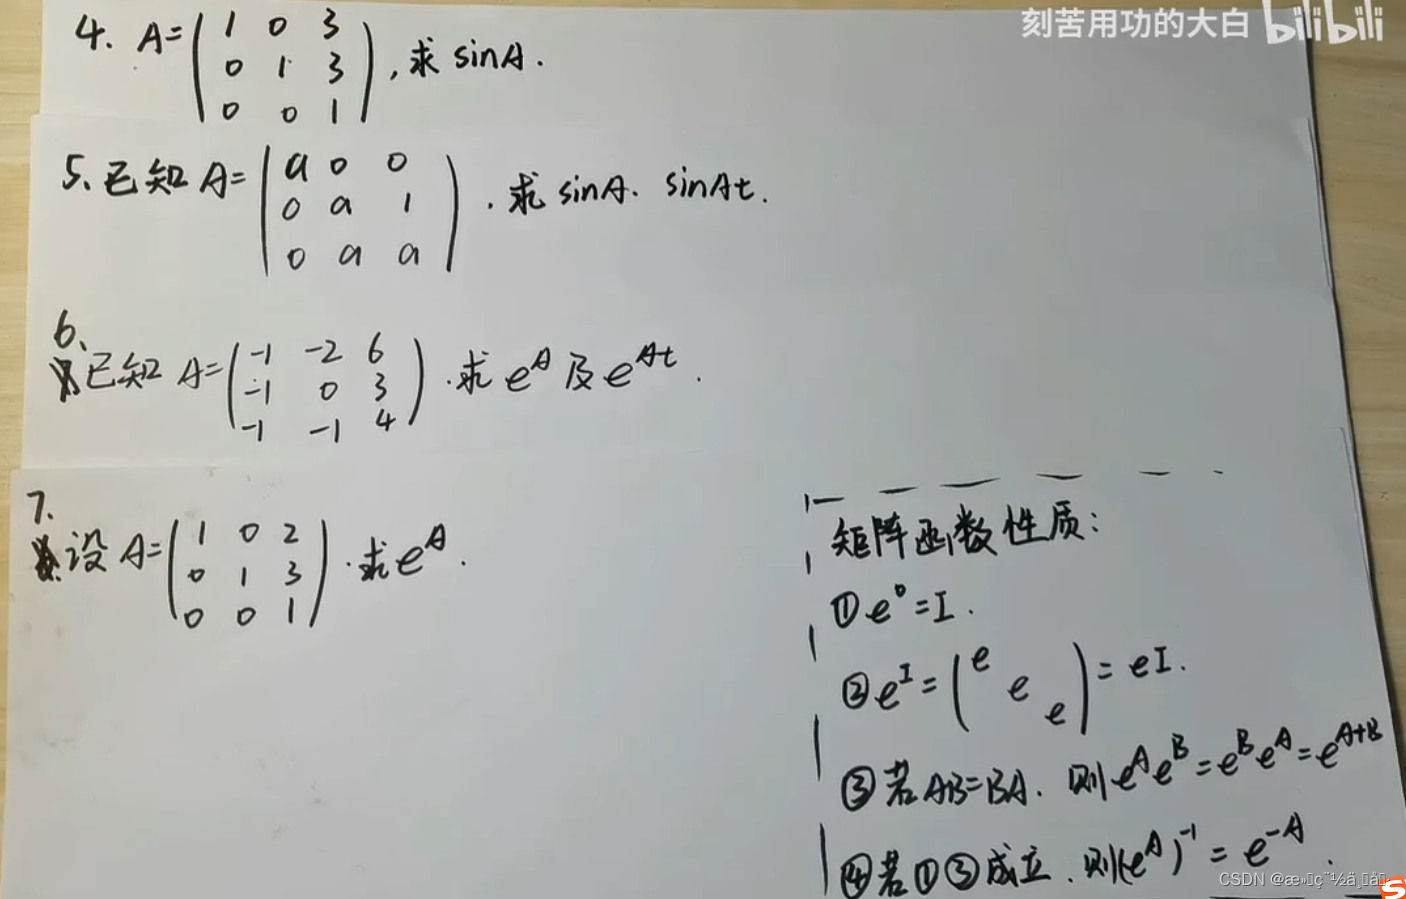 刻苦用功的大白 bilibili
4. A=(1 0 3
0 1 3
0 0 1), 求 sinA.
5. 已知 A=(a 0 0
0 a 1
0 a a). 求 sinA. sinAt.
6.
已知 A=(-1 -2 6
-1 0 3
-1 -1 4). 求 e^A 及 e^{At}.
7.
设 A=(1 0 2
0 1 3
0 0 1). 求 e^A.
矩阵函数性质:
① e^0 = I.
② e^I = (e e e) = eI.
③ 若 AB=BA. 则 e^A e^B = e^B e^A = e^{A+B}
④ 若①③成立. 则 (e^A)^{-1} = e^{-A}.
CSDN